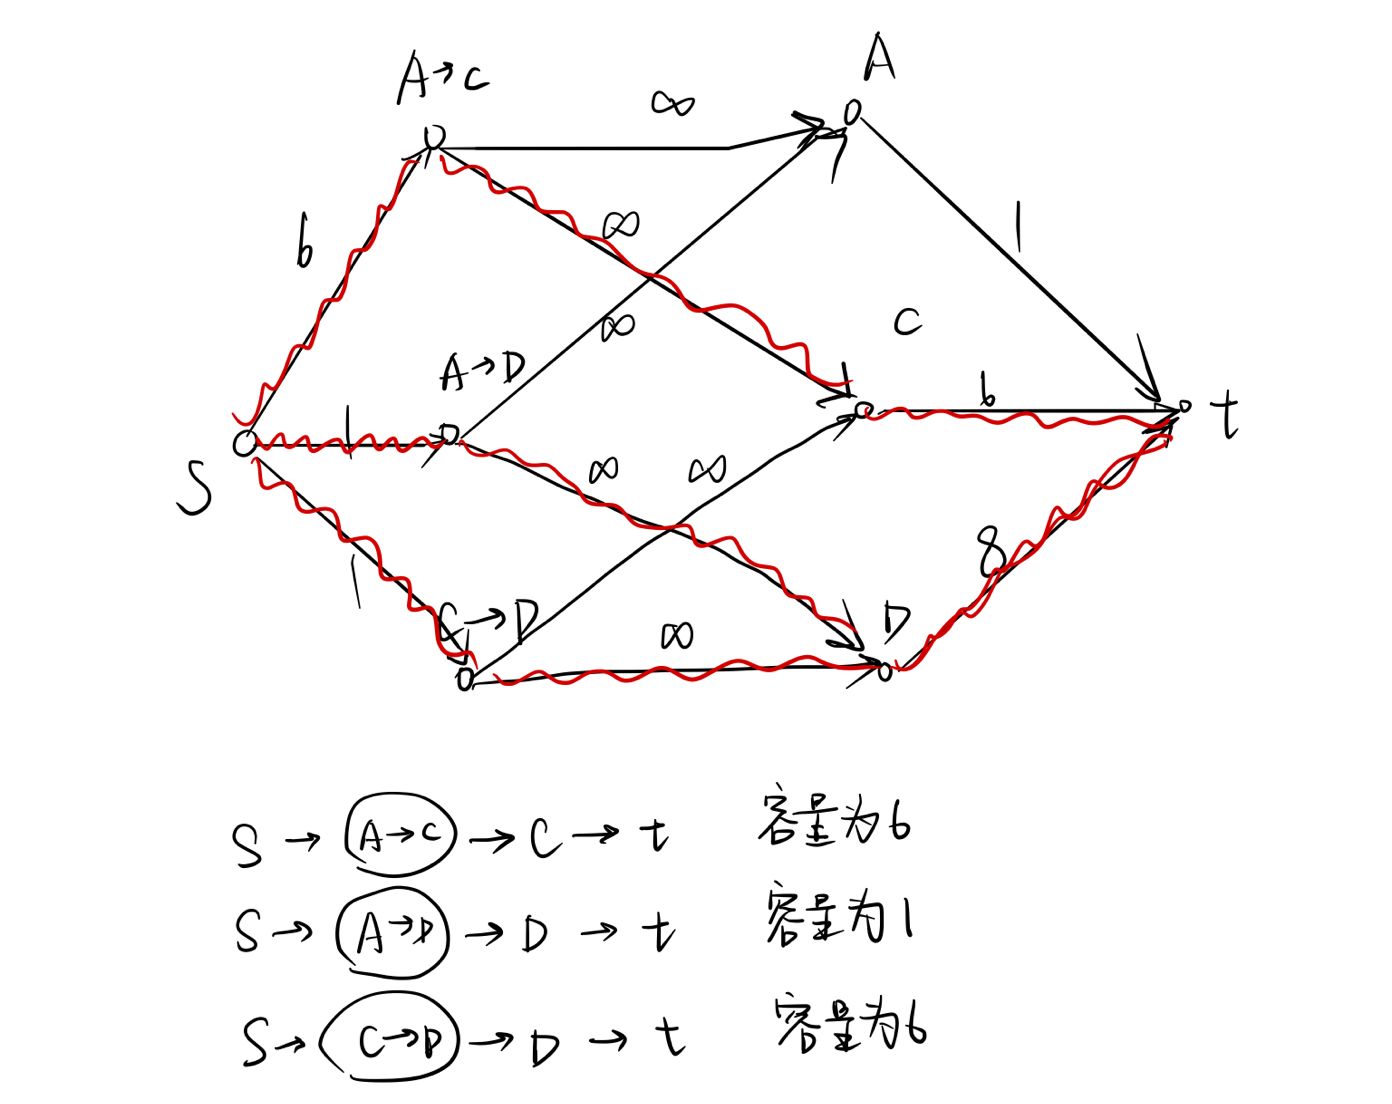 A
A→C
∞
6
∞
1
∞
C
A→D
1
6
t
S
∞
∞
1
8
C→D
∞
D
S → A→C → C → t 容量为6
S → A→D → D → t 容量为1
S → C→D → D → t 容量为6